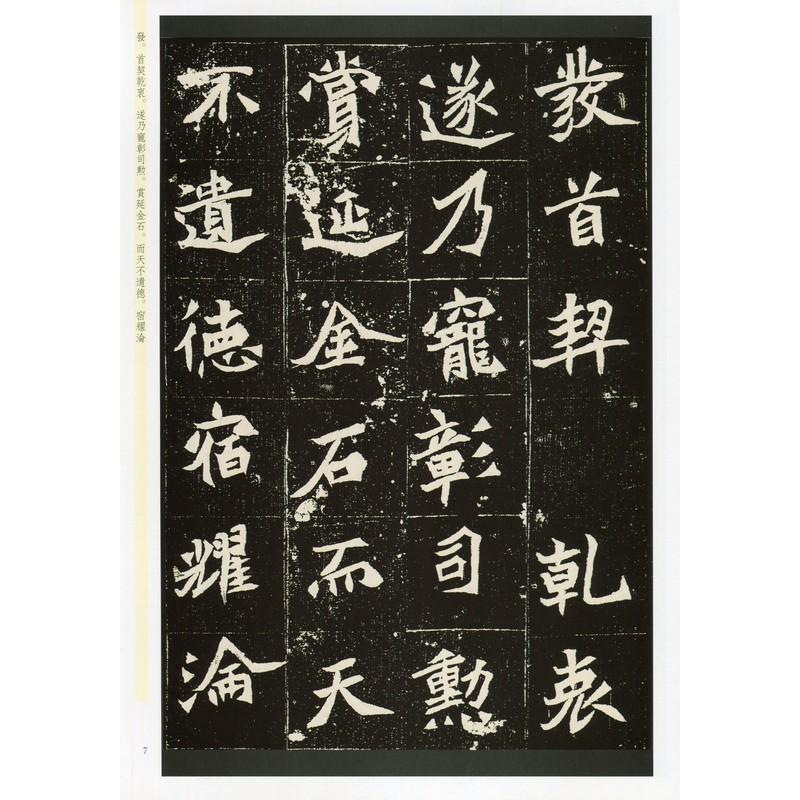 發首契乾衷
遂乃寵彰司勲
賞延金石而天
不遺德宿耀淪
發。首契乾衷。遂乃寵彰司勲。賞延金石。而天不遺德。宿耀淪
7